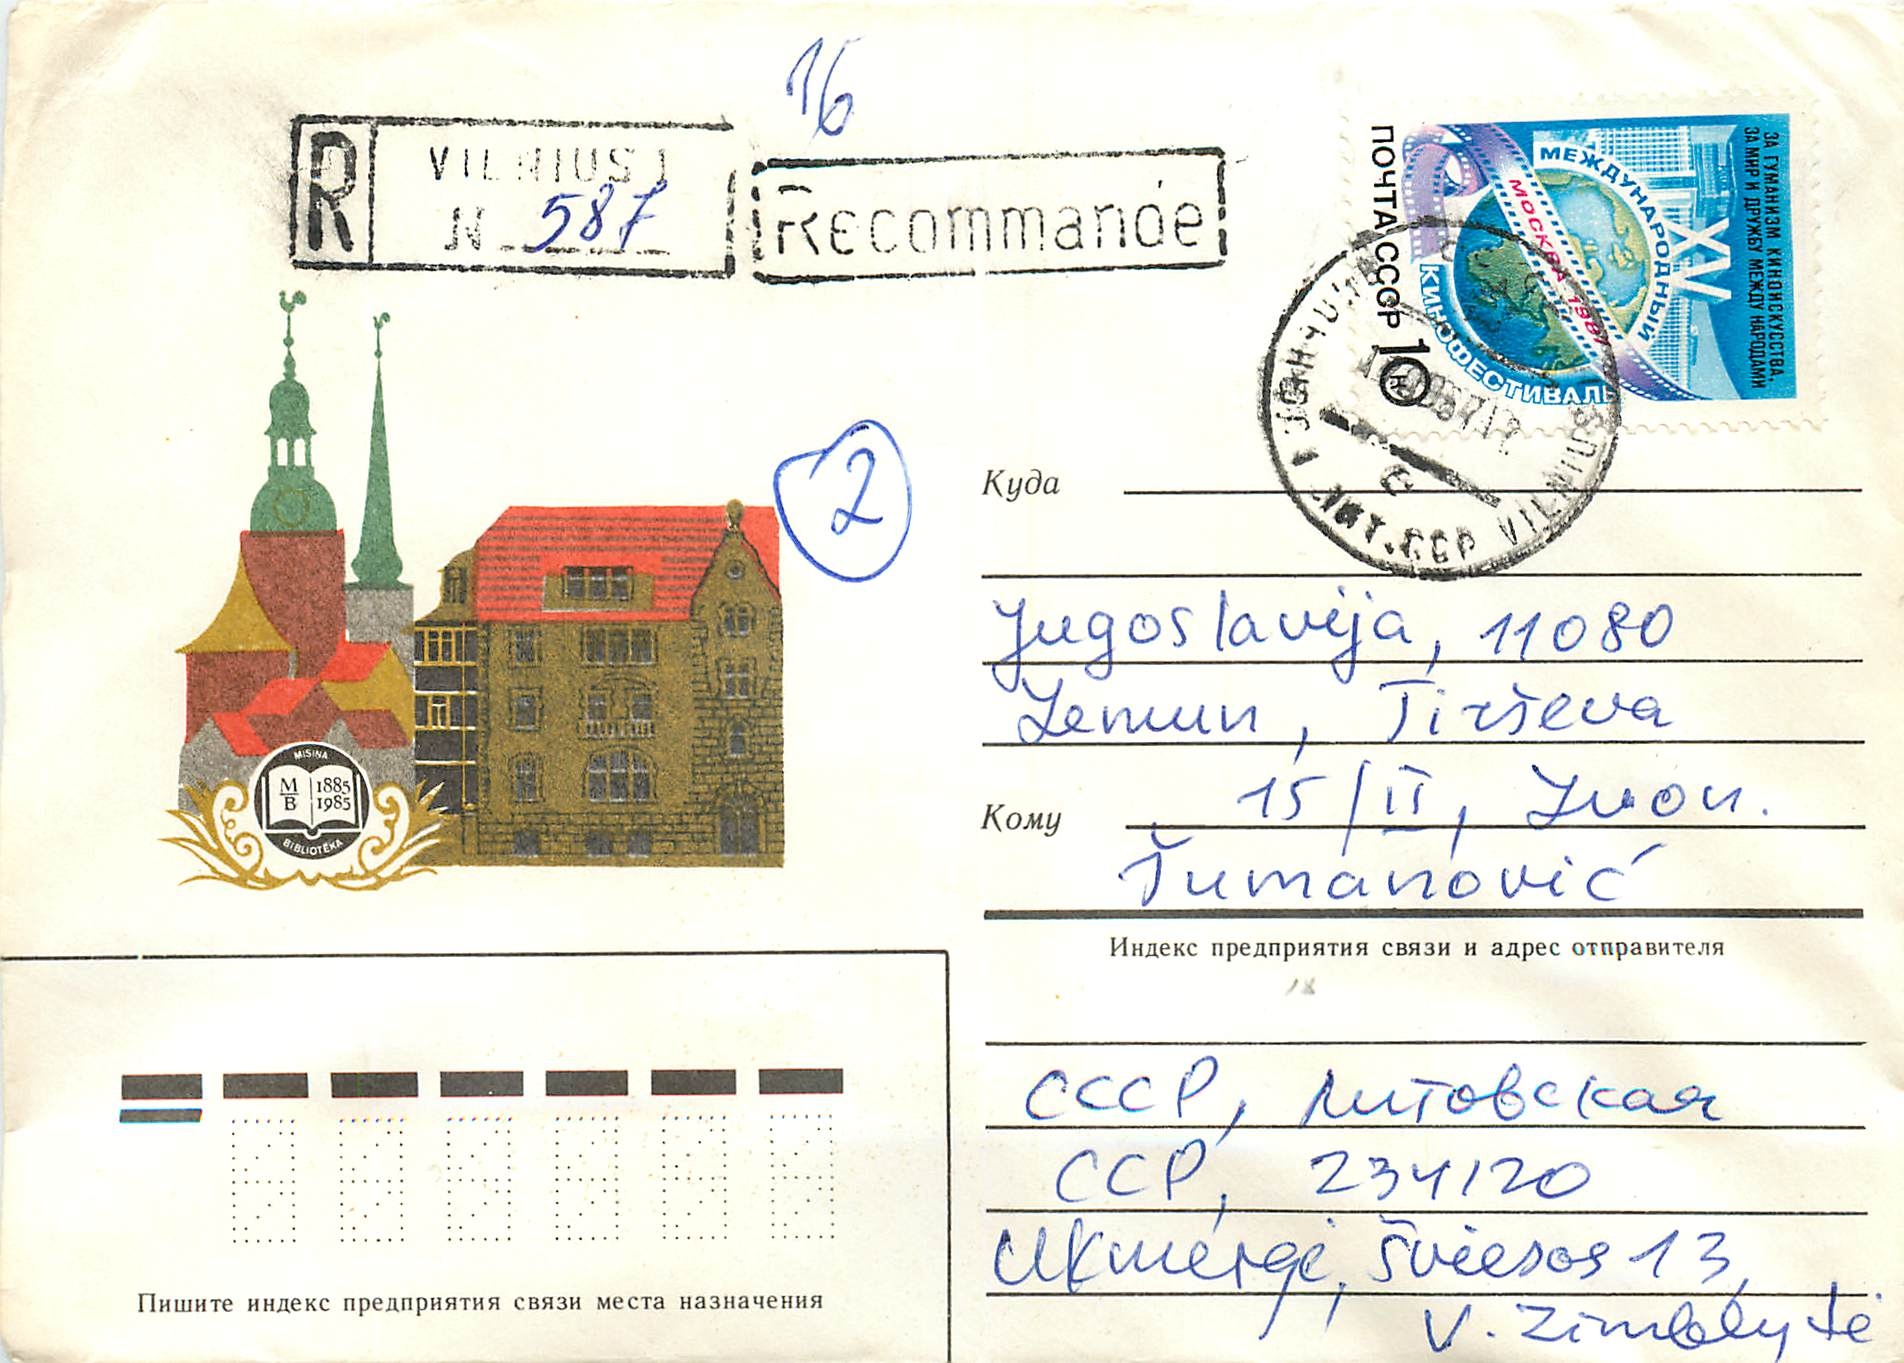 16
R
VILNIUS 1
N 587
Recommandé
ПОЧТА СССР 10 К
XV МЕЖДУНАРОДНЫЙ КИНОФЕСТИВАЛЬ
МОСКВА 1987
ЗА ГУМАНИЗМ КИНОИСКУССТВА,
ЗА МИР И ДРУЖБУ МЕЖДУ НАРОДАМИ
ЛИТ. ССР VILNIUS 1
2
MISIŅA
M B
1885
1985
BIBLIOTĒKA
Куда
Jugoslavija, 11080
Zemun, Tirševa
15/II, Jvon.
Кому
Tumanović
Индекс предприятия связи и адрес отправителя
18
СССР, Литовская
ССР, 234120
Ukmergė, Šviesos 13,
V. Zimblytė
Пишите индекс предприятия связи места назначения